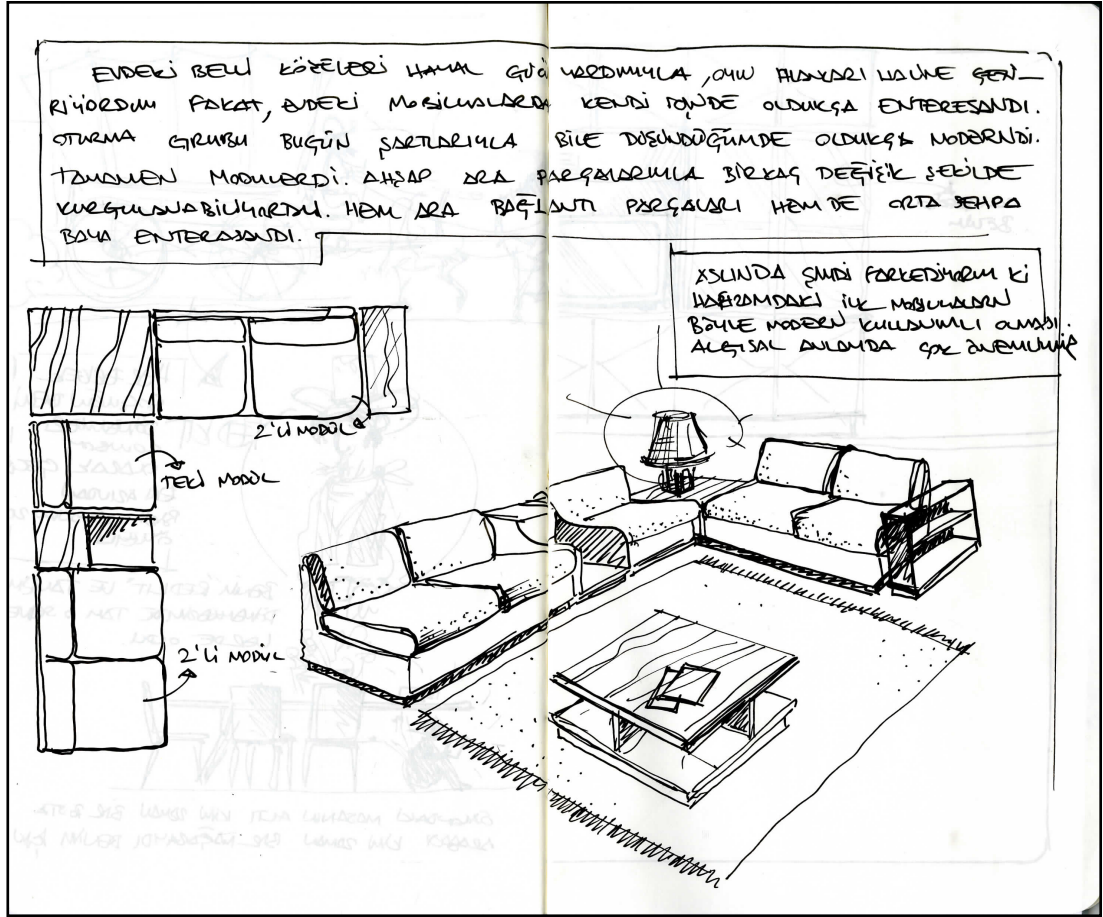 EVDEKİ BELLİ KÖŞELERİ HAYAL GÜCÜ YARDIMIYLA, OYUN ALANLARI HALİNE GETİ-
RİYORDUM FAKAT, EVDEKİ MOBİLYALARDA KENDİ İÇİNDE OLDUKÇA ENTERESANDI.
OTURMA GRUBU BUGÜN ŞARTLARIYLA BİLE DÜŞÜNDÜĞÜMDE OLDUKÇA MODERNDİ.
TAMAMEN MODULERDİ. AHŞAP ARA PARÇALARIYLA BİRKAÇ DEĞİŞİK ŞEKİLDE
KURGULANABİLİYORDU. HEM ARA BAĞLANTI PARÇALARI HEM DE ORTA SEHPA
BAYA ENTERASANDI.
ASLINDA ŞİMDİ FARKEDİYORUM Kİ
HAFIZAMDAKİ İLK MOBİLYALARIN
BÖYLE MODERN KULLANIMLI OLMASI
ALGISAL ANLAMDA ÇOK ÖNEMLİYMİŞ
2'Lİ MODÜL
TEKLİ MODÜL
2'Lİ MODÜL